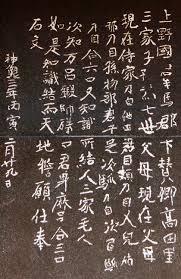 上野國羣馬郡下賛郷高田里
三家子孫為七世父母現在父母
現在侍家刀自他田君目頬刀自又兒加
那刀自孫物部君午足次馴刀自次乙馴
刀自合六口又知識所結人三家毛人
次知万呂鍛師礒部君身麻呂合三口
如是知識結而天地誓願仕奉
石文
神亀三年丙寅二月廿九日